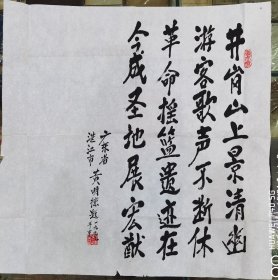 井岗山上景清幽
游客歌声不断休
革命摇篮遗迹在
今成圣地展宏猷
广东省
湛江市黄明德敬